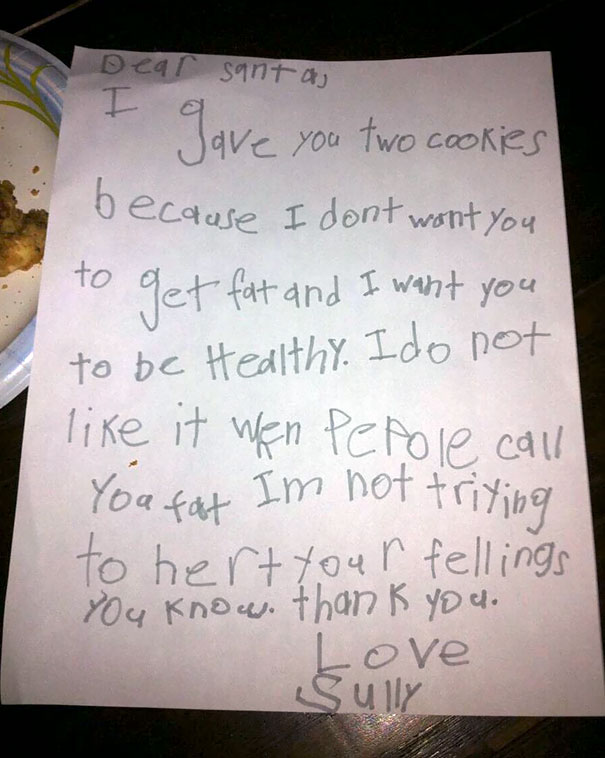 Dear santa,
I gave you two cookies
because I dont want you
to get fat and I want you
to be Healthy. I do not
like it wen PePole call
You fat Im not triying
to hert your fellings
You know. thank you.
Love
Sully